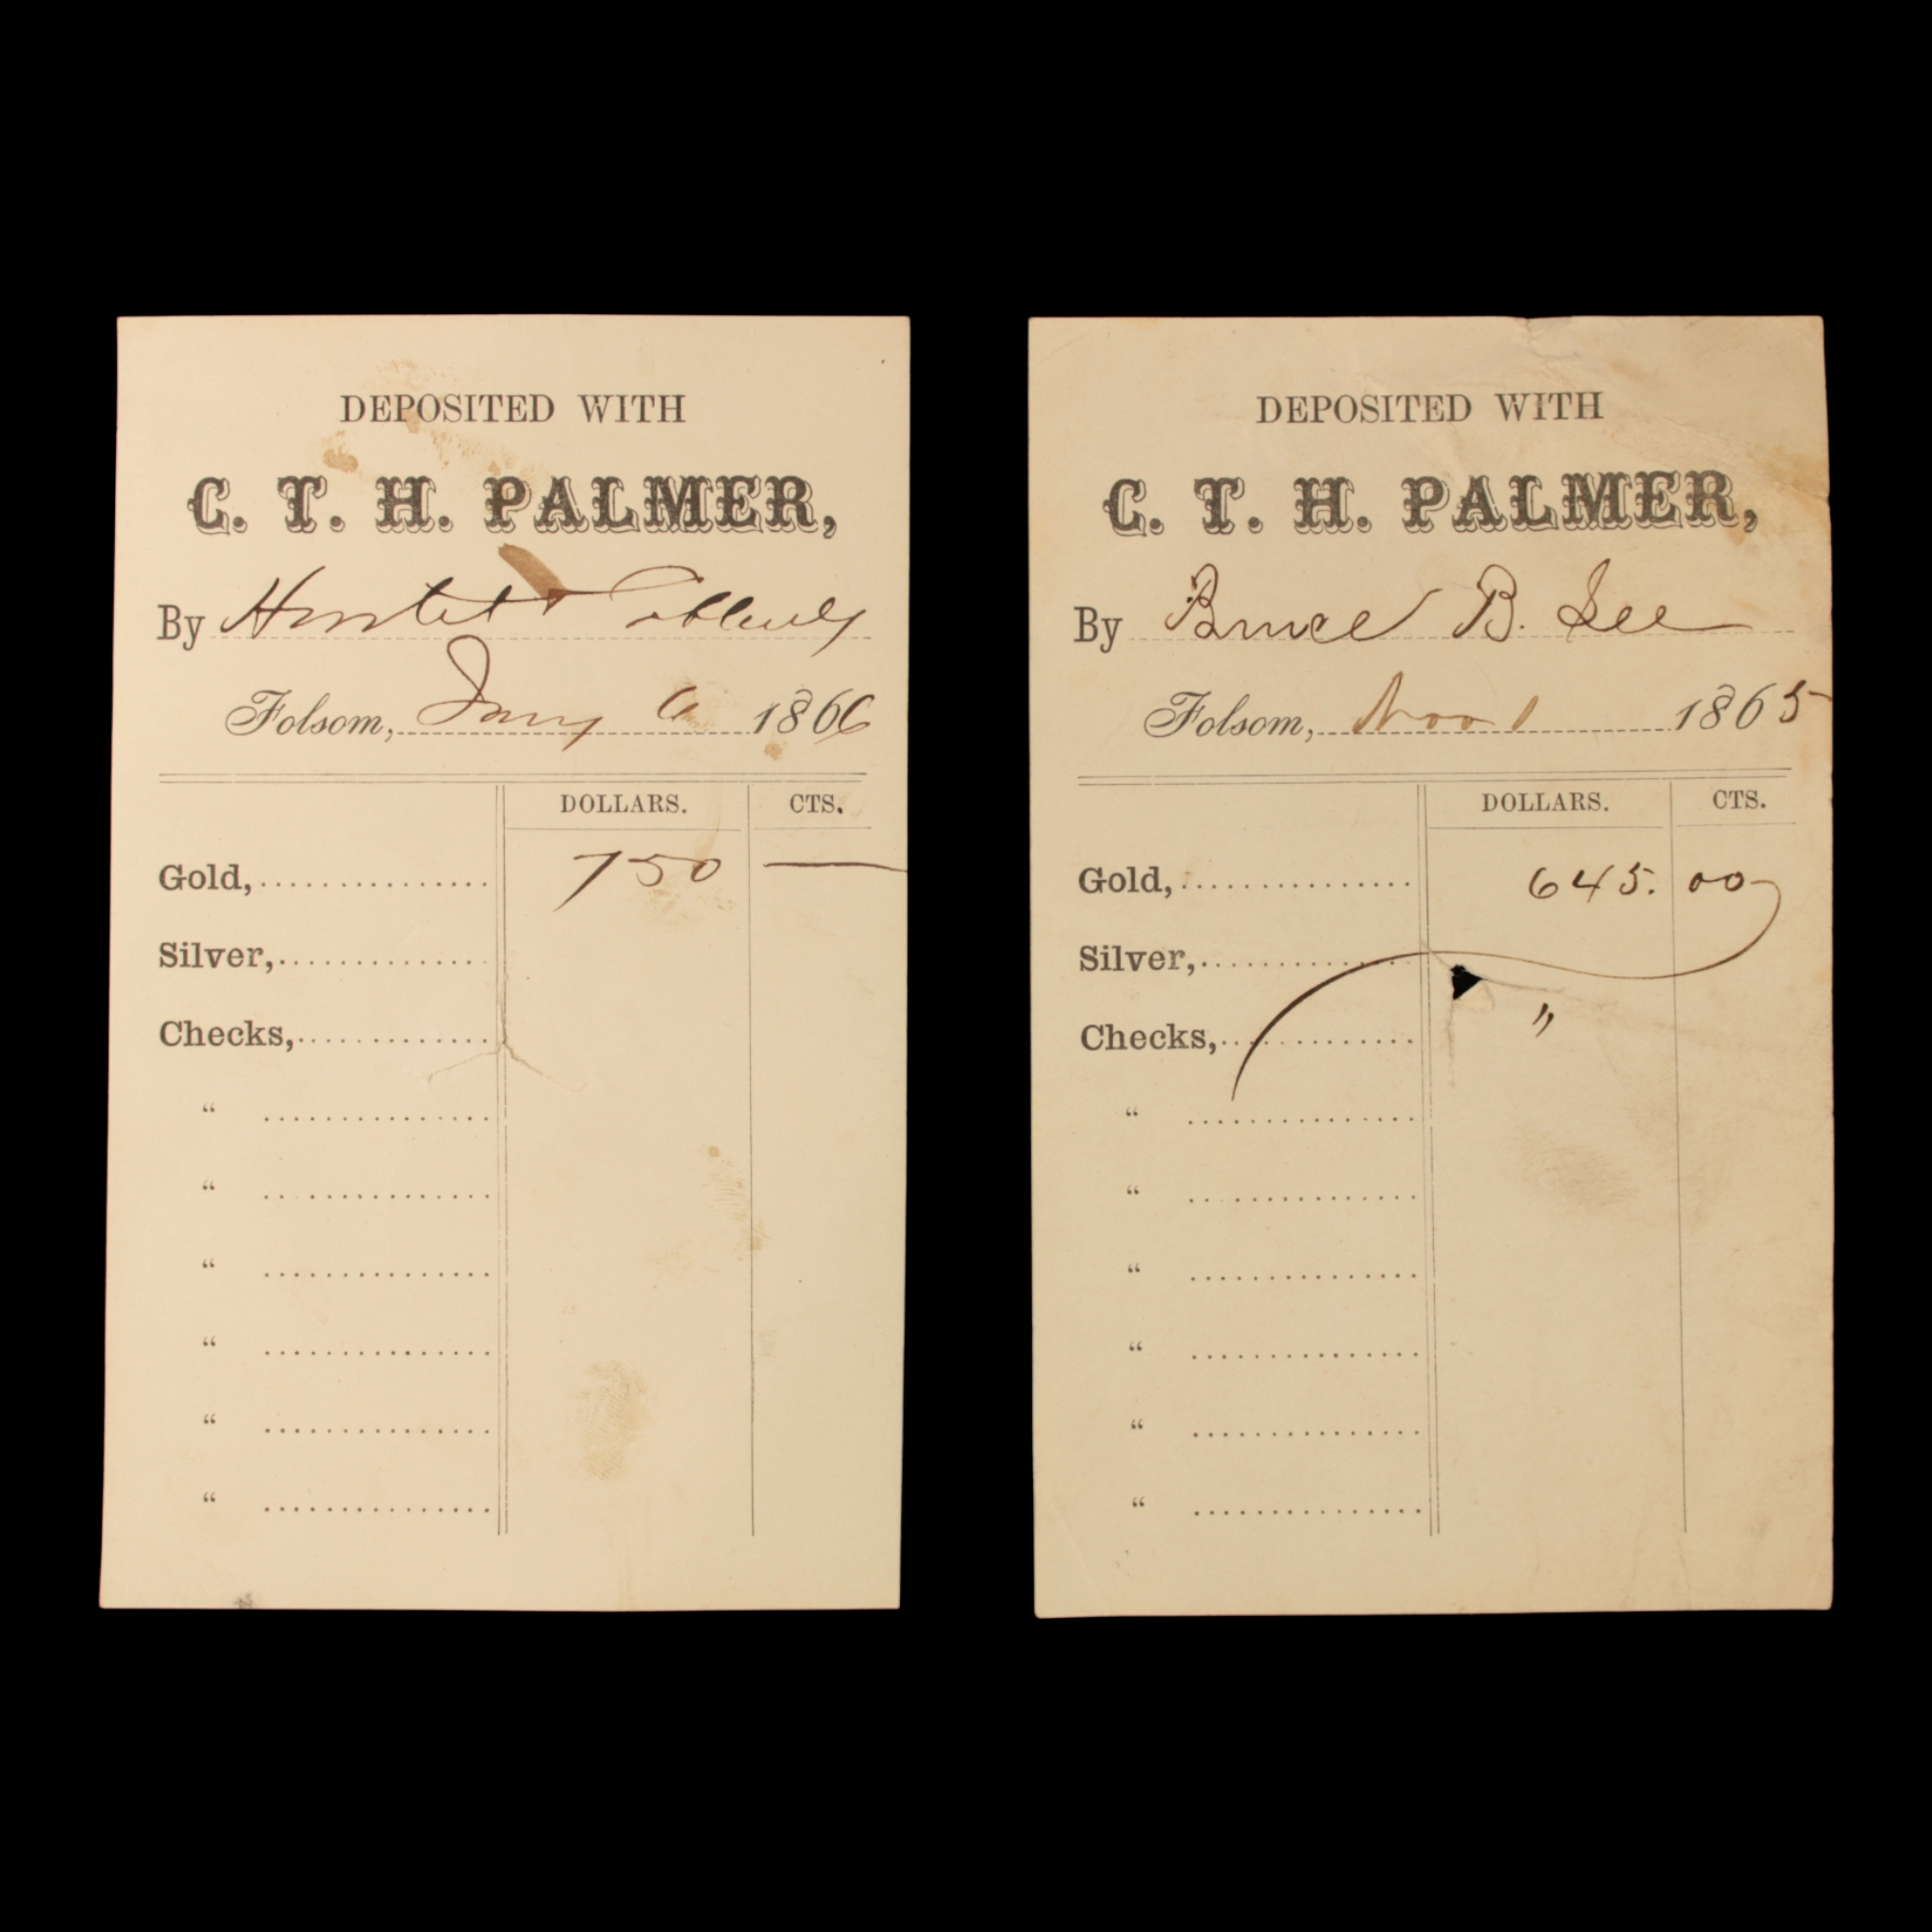 DEPOSITED WITH
C. T. H. PALMER,
By
Folsom, Jany 6 1866
DOLLARS. CTS.
Gold, 750 —
Silver,
Checks,
“
“
“
“
“
“
DEPOSITED WITH
C. T. H. PALMER,
By Bruce B. Lee
Folsom, Nov 1 1865
DOLLARS. CTS.
Gold, 645. 00
Silver,
Checks, "
“
“
“
“
“
“